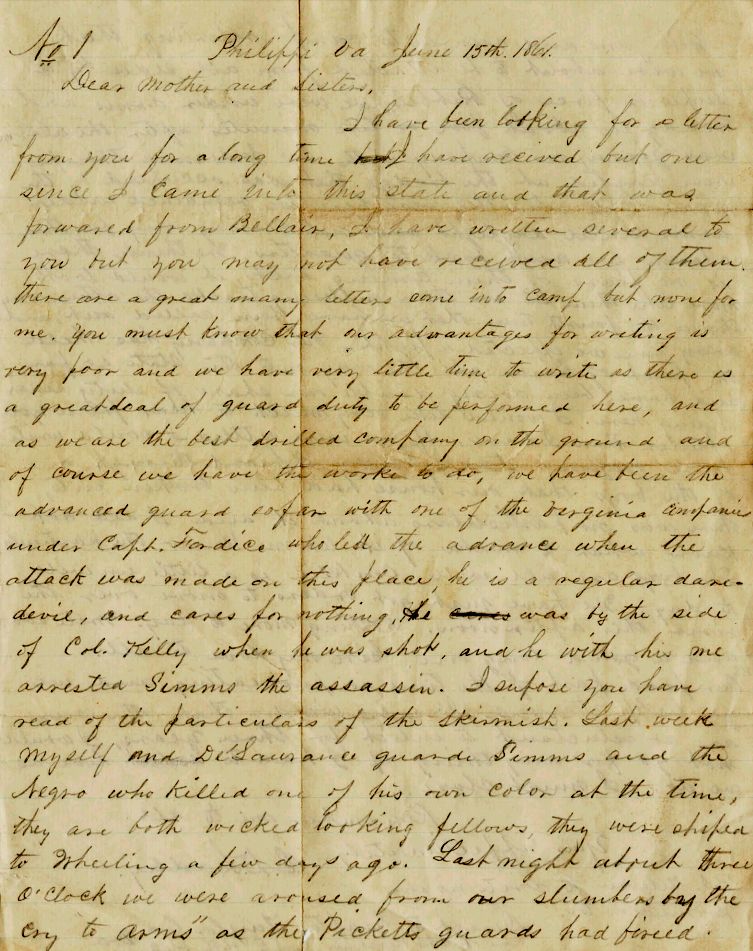 No 1 Philippi Va June 15th. 1861.
Dear Mother and Sisters,
I have been looking for a letter
from you for a long time but I have received but one
since I came into this state and that was
forwared from Bellair, I have written several to
you but you may not have received all of them.
there are a great many letters come into camp but none for
me. you must know that our advantages for writing is
very poor and we have very little time to write as there is
a greatdeal of guard duty to be performed here, and
as we are the best drilled company on the ground and
of course we have the worke to do, we have been the
advanced guard so far with one of the Verginia companies
under Capt. Fordice who led the advance when the
attack was made on this place, he is a regular dare-
devil, and cares for nothing, he cares was by the side
of Col. Kelly when he was shot, and he with his me
arrested Simms the assassin. I supose you have
read of the particulars of the skirmish. Last week
myself and De'Saurance guarde Simms and the
Negro who killed one of his own color at the time,
they are both wicked looking fellows, they were shiped
to Wheeling a few days ago. Last night about three
O'Clock we were aroused from our slumbers by the
cry to arms" as the Picketts guards had fireed.